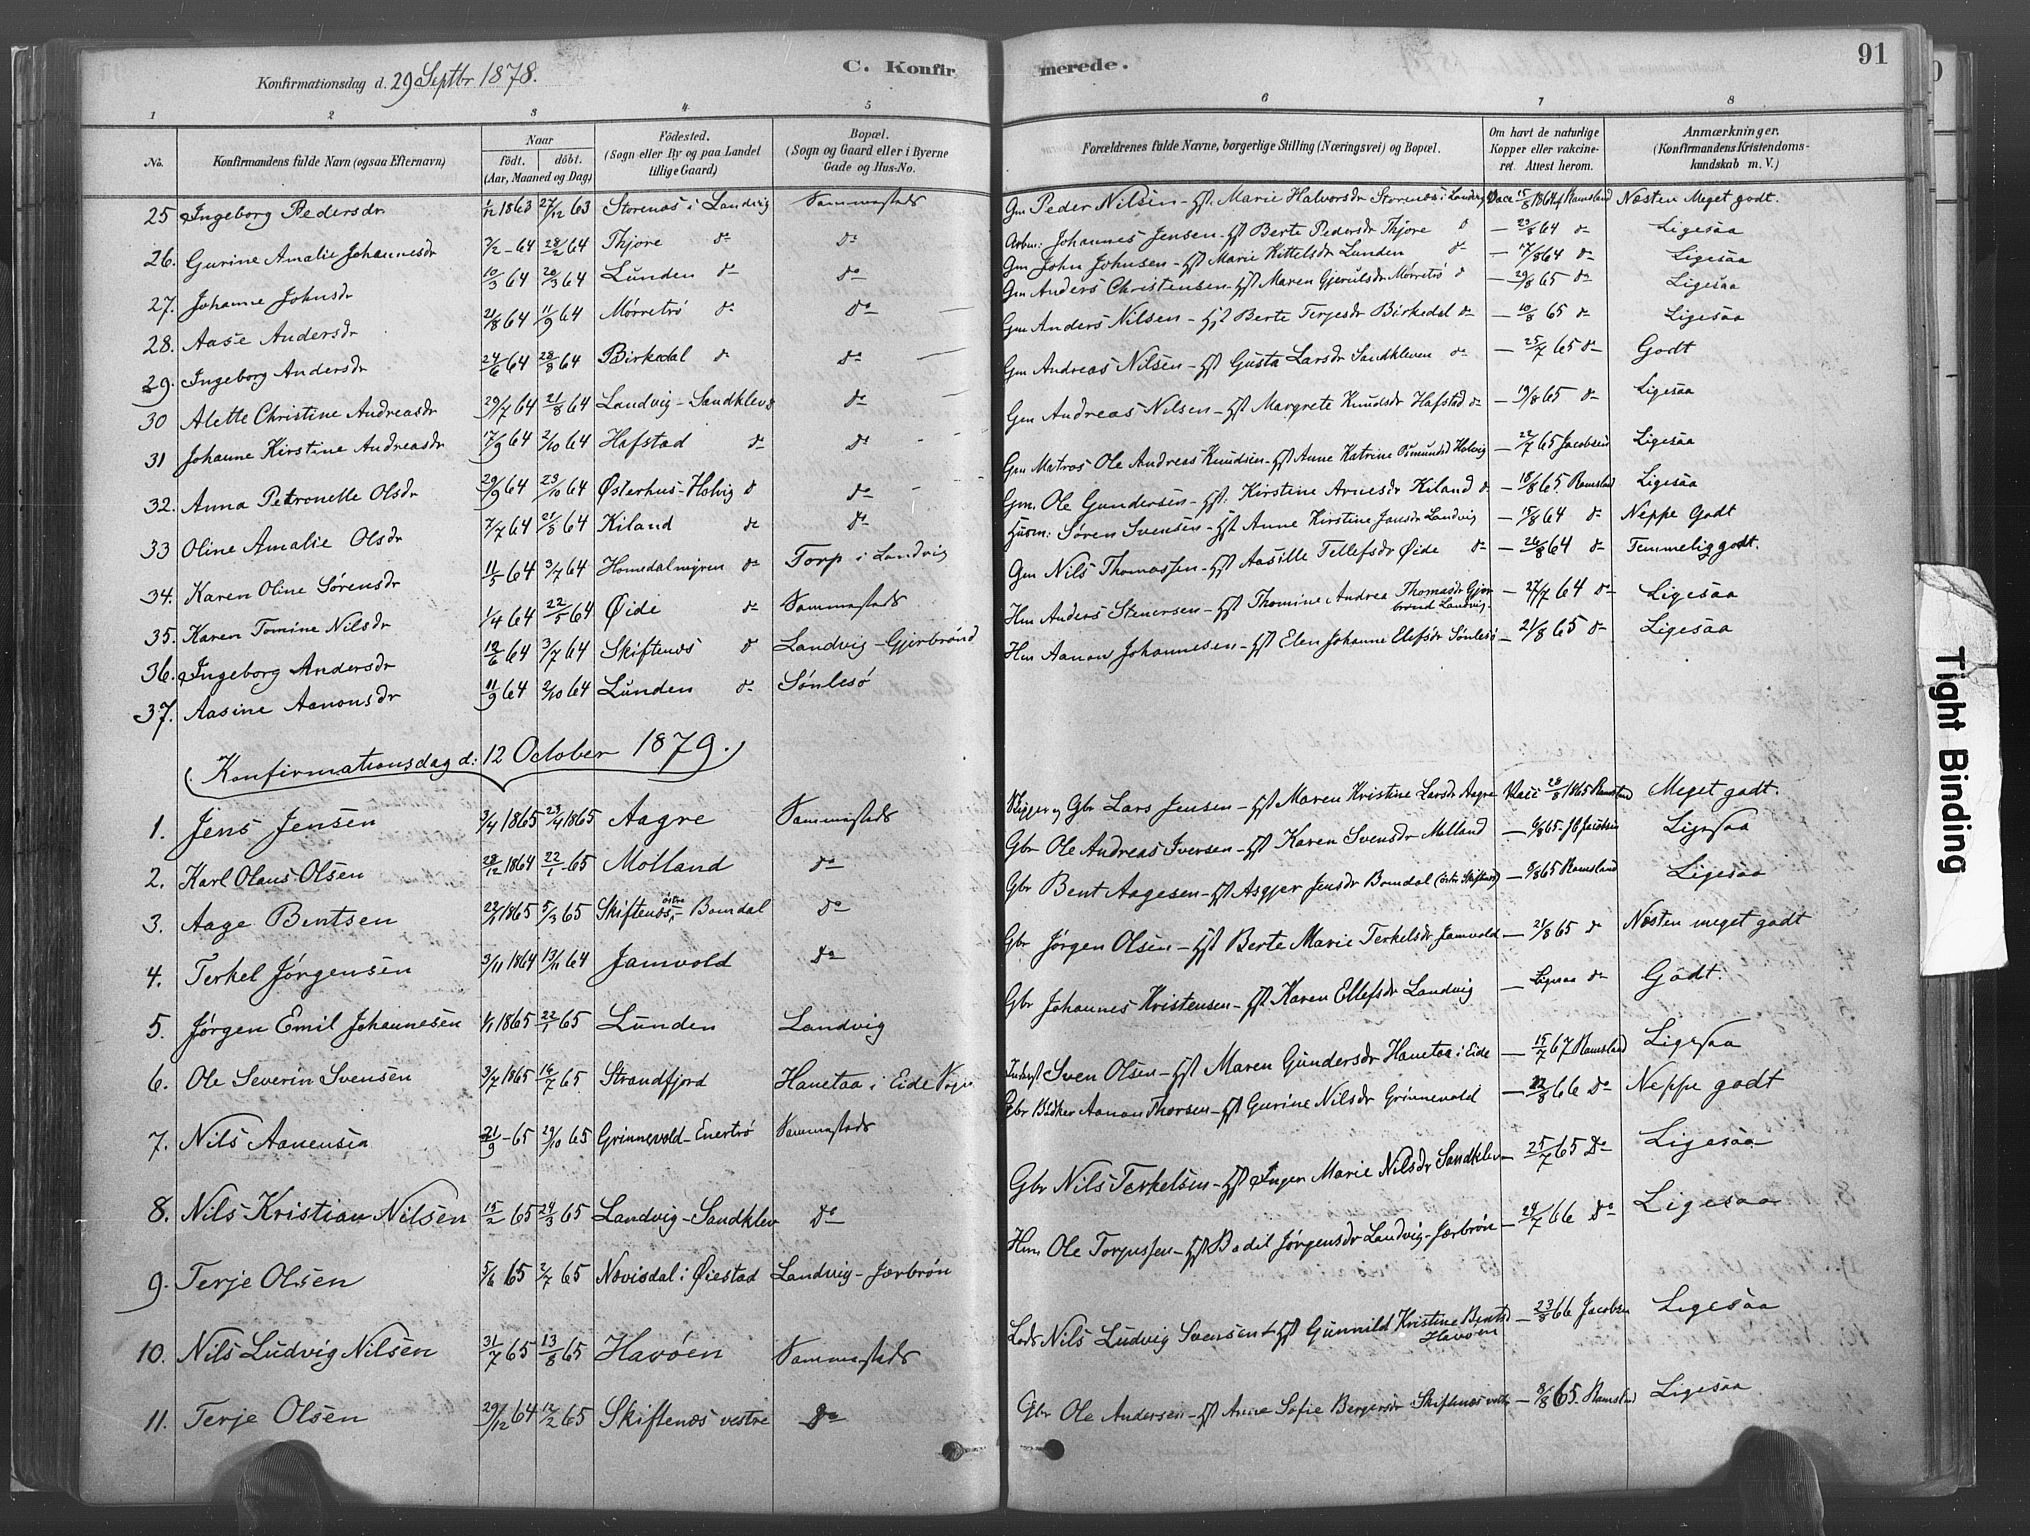 Konfirmationsdag d. 29 Septbr 1878.
C. Konfirmerede.
91
1 2 3 4 5 6 7 8
No. Konfirmandens fulde Navn (ogsaa Efternavn) Naar födt. döbt. (Aar, Maaned og Dag) Födested. (Sogn eller By og paa Landet tillige Gaard) Bopæl. (Sogn og Gaard eller i Byerne Gade og Hus-No. Forældrenes fulde Navne, borgerlige Stilling (Næringsvei) og Bopæl. Om havt de naturlige Kopper eller vakcineret. Attest herom. Anmærkninger. (Konfirmandens Kristendomskundskab m. V.)
25 Ingeborg Pedersdr 1/12 1863 27/12 63 Storenæs i Landvig Sammestads Gm Peder Nilsen - Hst. Marie Halvorsdr Storenæs i Landvig Vace 15/8 1864 Ramsland Næsten Meget godt.
26. Gurine Amalie Johannesdr 7/2 - 64 28/2 64 Thjore do do Arbm: Johannes Jensen - Hst Berte Pedersdr Thjore do - 23/8 64 do Ligesaa
27. Johanne Johnsdr 10/3 64 20/3 64 Lunden do do Gm John Johnsen - Hst Marie Kittelsdr Lunden do - 17/8 64 do Ligesaa
28. Aase Andersdr 21/8 64 11/9 64 Mørretrö do do Gm Anders Christensen - Hst Maren Gjerulsdr Mörretrö do - 29/8 65 do Ligesaa
29. Ingeborg Andersdr 24/6 64 28/8 64 Birkedal do do Gm Anders Nilsen - Hst Berte Terjesdr Birkedal do - 10/8 65 do Ligesaa
30 Alette Christine Andreasdr 29/7 64 21/8 64 Landvig - Sandklev do Gm Andreas Nilsen - Hst Gusta Larsdr Sandkleven do - 25/7 65 do Godt
31 Johanne Kirstine Andreasdr 17/9 64 2/10 64 Hafstad do do Gm Andreas Nilsen - Hst Margrete Knudsdr Hafstad do - 19/8 65 do Ligesaa
32. Anna Petronelle Olsdr 29/9 64 23/10 64 Østerhus - Holvig do do Gm Matros Ole Andreas Knudsen - Hst Anne Katrine Osmundsd Holvig - 22/7 65 Jacobsen Ligesaa
33 Oline Amalie Olsdr 7/7 64 21/8 64 Kiland do do Gm. Ole Gundersen - Hst. Kirstine Arnesdr Kiland do - 18/8 65. Ramsland Ligesaa
34. Karen Oline Sørensdr 11/5 64 3/7 64 Homdalmyren do Torp i Landvig Husm: Søren Svensen - Hst Anne Kirstine Jansdr Landvig - 15/8 64 do Neppe Godt
35. Karen Tomine Nilsdr 1/4 64 22/5 64 Øide do Sammestads Gm Nils Thomassen - Hst Aasille Tellefsdr Øide do - 26/8 64 do Temmelig godt.
36. Ingeborg Andersdr 12/6 64 3/7 64 Skiftenes do Landvig - Gjerbrönd Hm Anders Stenersen - Hst Thomine Andrea Thomasdr Gjerbrönd Landvig - 27/7 64 do Ligesaa
37. Aasine Aanonsdr 11/9 64 2/10 64 Lunden do Sönlesö Hm Aanon Johannesen - Hst Elen Johanne Elefsdr Sönlesö - 21/8 65 do Ligesaa
Konfirmationsdag d: 12 October 1879.
1. Jens Jensen 3/4 1865 23/4 1865 Aagre Sammestads Skipper og Gbr Lars Jensen - Hst Maren Kristine Larsdr Aagre Vace 28/8 1865 Ramsland Meget godt.
2. Karl Olaus Olsen 28/12 1864 22/1 65 Molland do Gbr Ole Andreas Iversen - Hst Karen Svensdr Molland - 6/8 65 - Jacobsen Ligesaa
3. Aage Bentsen 22/1 1865 5/3 65 Skiftenæs östre - Bomdal Do Gbr Bent Aagesen - Hst Asgjer Jensdr Bomdal (östre Skiftenes) - 8/8 65 Ramsland Ligesaa
4. Terkel Jørgensen 3/11 1864 13/11 64 Jamvold Do Gbr Jørgen Olsen - Hst Berte Marie Terkelsdr Jamvold - 21/8 65 do Næsten meget godt
5. Jørgen Emil Johannesen 1/1 1865 22/1 65 Lunden Landvig Gbr Johannes Kristensen - Hst Karen Ellefsdr Landvig - Ligesaa do Godt.
6. Ole Severin Svensen 3/7 1865 16/7 65. Strandfjord Hanetaa i Eide Sogn Inderst Sven Olsen - Hst Maren Gundersdr Hanetaa i Eide - 15/7 67 Ramsland Ligesaa
7. Nils Aanensen 21/9 - 65 29/10 65 Grinnevold - Enertrö Sammestads Gbr Bödker Aanon Thorsen - Hst Gurine Nilsdr Grinnevold - 22/8 66 Do Neppe godt
8. Nils Kristian Nilsen 15/2 65 24/3 65 Landvig - Sandklev Do Gbr Nils Terkelsen - Hst Inger Marie Nilsdr Sandklev - 25/7 65 Do Ligesaa
9. Terje Olsen 5/6 65 2/7 65 Nævisdal i Øiestad Landvig - Jærbrön Hm Ole Torjussen - Hst Bodil Jörgensdr Landvig - Jærbrön - 29/7 66 Do Ligesaa
10. Nils Ludvig Nilsen 31/7 65 13/8 65 Havöen Sammestads Lods Nils Ludvig Svensen + Hst Gunnild Kristine Bentsd Havöen - 23/8 66 Jacobsen Ligesaa
11. Terje Olsen 29/12 64 12/2 65 Skiftenæs vestre Do Gbr Ole Andersen - Hst Anne Sofie Bergersdr Skiftenæs vestre - 8/8 65. Ramsland Ligesaa
Tight Binding